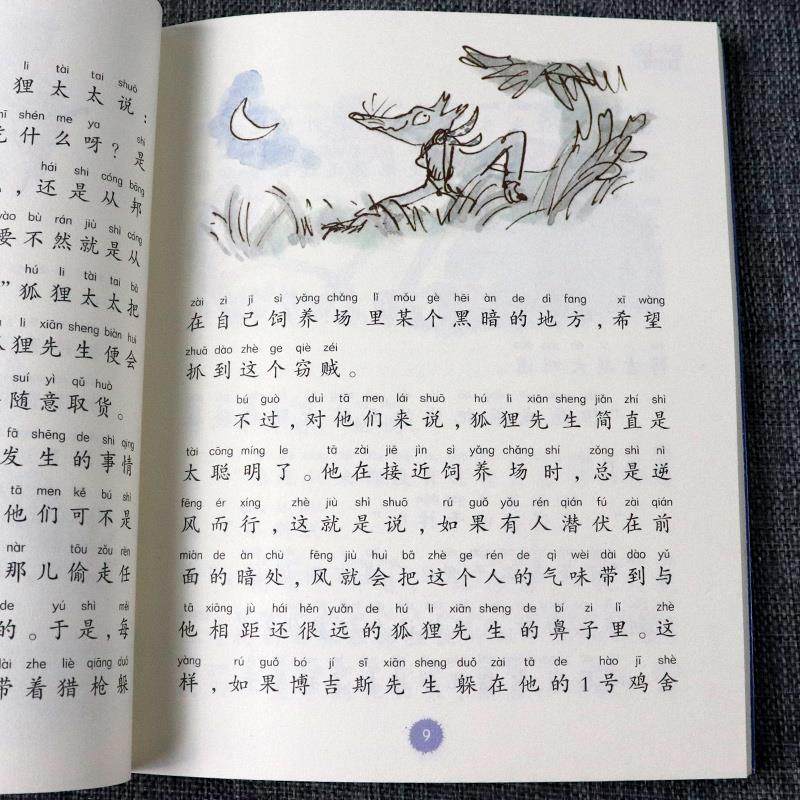 li tài tai shuō
狸太太说：
shén me ya shì
什么呀？是
hái shi cóng bāng
，还是从邦
yào bù rán jiù shì cóng
要不然就是从
hú li tài tai bǎ
”狐狸太太把
li xiān sheng biàn huì
狸先生便会
suí yì qǔ huò
随意取货。
fā shēng de shì qing
发生的事情
tā men kě bú shì
他们可不是
nàr tōu zǒu rèn
那儿偷走任
de yú shì měi
的。于是，每
dài zhe liè qiāng duǒ
带着猎枪躲
zài zì jǐ sì yǎng chǎng lǐ mǒu gè hēi àn de dì fang xī wàng
在自己饲养场里某个黑暗的地方，希望
zhuā dào zhè ge qiè zéi
抓到这个窃贼。
bú guò duì tā men lái shuō hú li xiān sheng jiǎn zhí shì
不过，对他们来说，狐狸先生简直是
tài cōng míng le tā zài jiē jìn sì yǎng chǎng shí zǒng shì nì
太聪明了。他在接近饲养场时，总是逆
fēng ér xíng zhè jiù shì shuō rú guǒ yǒu rén qián fú zài qián
风而行，这就是说，如果有人潜伏在前
miàn de àn chù fēng jiù huì bǎ zhè ge rén de qì wèi dài dào yǔ
面的暗处，风就会把这个人的气味带到与
tā xiāng jù hái hěn yuǎn de hú li xiān sheng de bí zi lǐ zhè
他相距还很远的狐狸先生的鼻子里。这
yàng rú guǒ bó jí sī xiān sheng duǒ zài tā de hào jī shè
样，如果博吉斯先生躲在他的1号鸡舍
9